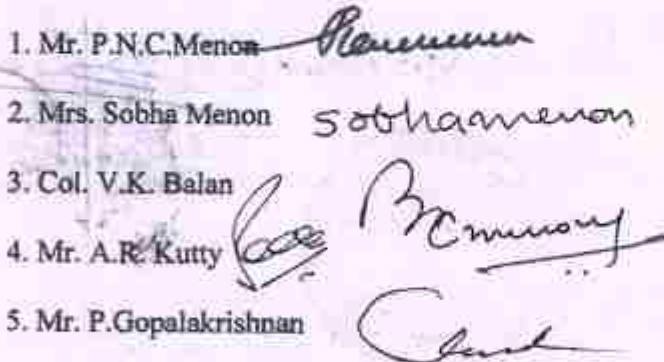 1. Mr. P.N.C,Menon
2. Mrs. Sobha Menon sobhamenon
3. Col. V.K. Balan
4. Mr. A.R. Kutty
5. Mr. P.Gopalakrishnan